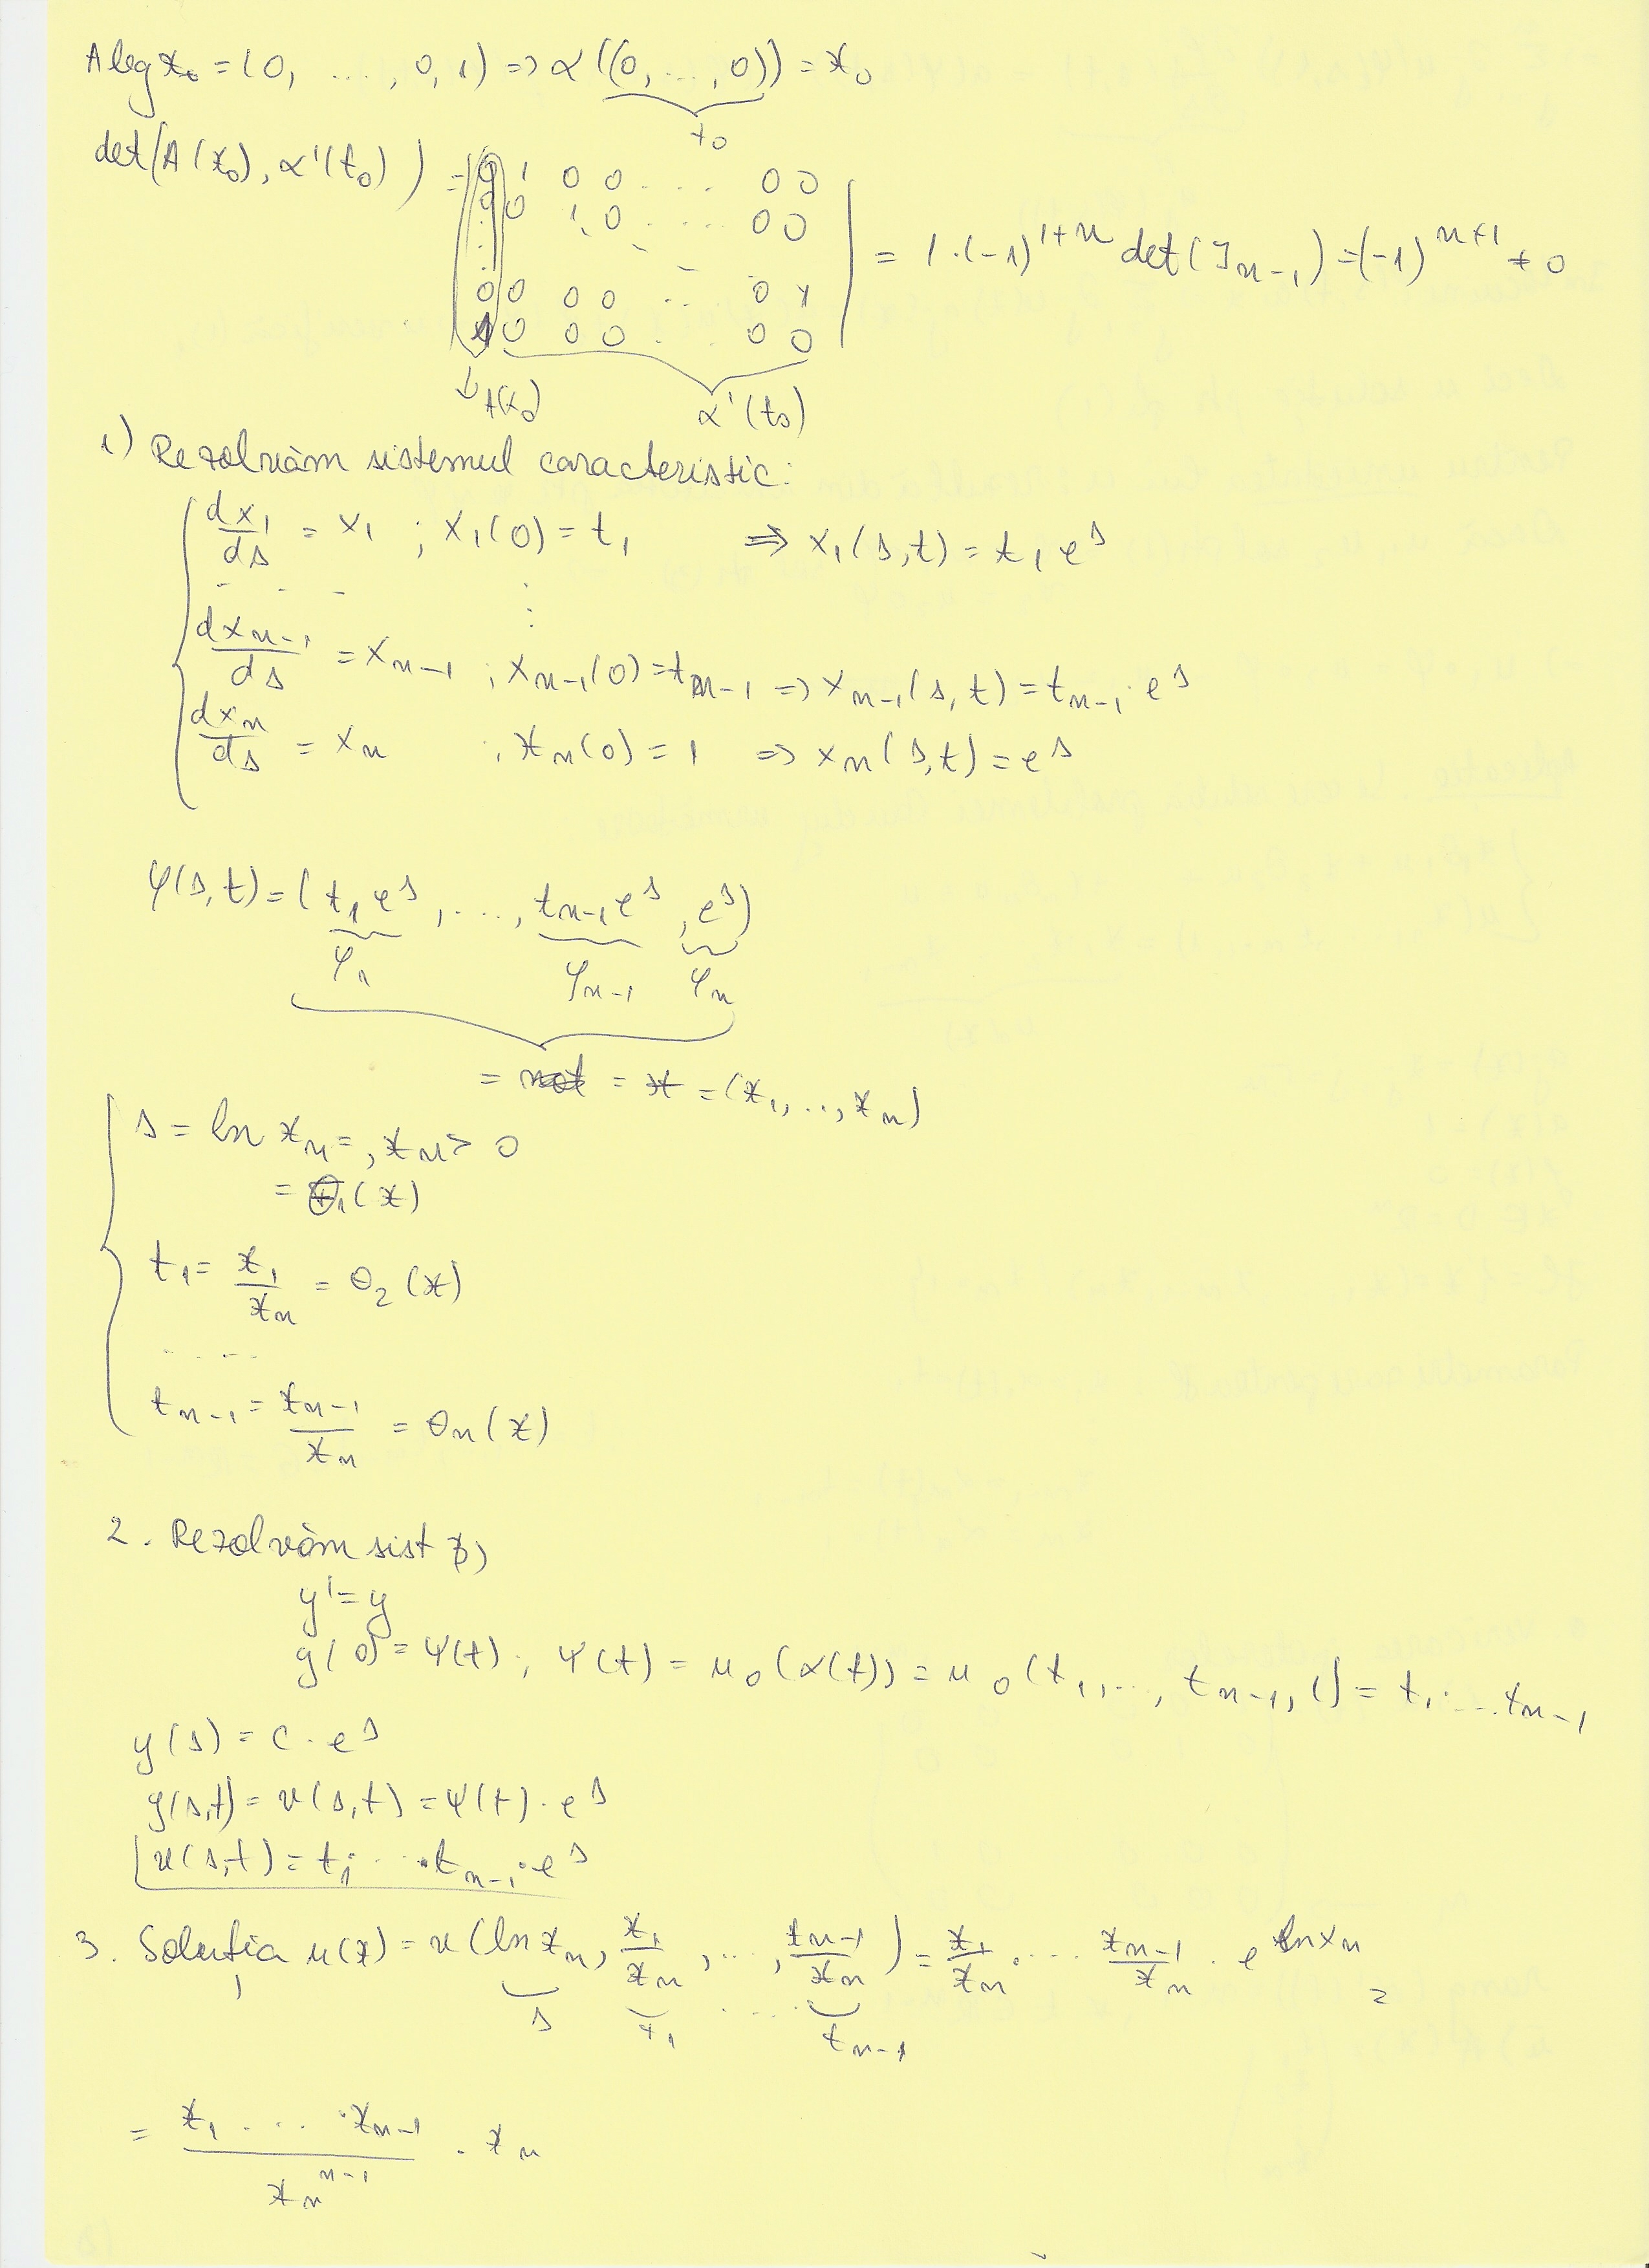 Aleg x₀ = (0, ..., 0, 1) => α((0, ..., 0)) = x₀
t₀
det(A(x₀), α'(t₀)) = | 0 1 0 0 .... 0 0
0 0 1 0 .... 0 0
= 1·(-1)^{1+n} det(I_{n-1}) = (-1)^{n+1} ≠ 0
0 0 0 0 ... 0 1
1 0 0 0 ... 0 0 |
↓ A(x₀) α'(t₀)
1) Rezolvăm sistemul caracteristic:
dx₁/ds = x₁ ; x₁(0) = t₁ => x₁(s,t) = t₁ e^s
- - - ⋮
dx_{n-1}/ds = x_{n-1} ; x_{n-1}(0) = t_{n-1} => x_{n-1}(s,t) = t_{n-1}·e^s
dx_n/ds = x_n ; x_n(0) = 1 => x_n(s,t) = e^s
φ(s,t) = (t₁e^s, ..., t_{n-1}e^s, e^s)
φ₁ φ_{n-1} φ_n
= not = x = (x₁, .., x_n)
s = ln x_n =, x_n > 0
= θ₁(x)
t₁ = x₁/x_n = θ₂(x)
.....
t_{n-1} = x_{n-1}/x_n = θ_n(x)
2. Rezolvăm sist
y' = y
y(0) = ψ(t) ; ψ(t) = u₀(α(t)) = u₀(t₁, ..., t_{n-1}, 1) = t₁ .... t_{n-1}
y(s) = c · e^s
y(s,t) = v(s,t) = ψ(t) · e^s
v(s,t) = t₁ · ... · t_{n-1} · e^s
3. Soluţia u(x) = v(ln x_n, x₁/x_n, ..., x_{n-1}/x_n) = x₁/x_n · .... x_{n-1}/x_n · e^{ln x_n} =
s t₁ .... t_{n-1}
= x₁ . ... · x_{n-1}/x_n^{n-1} · x_n